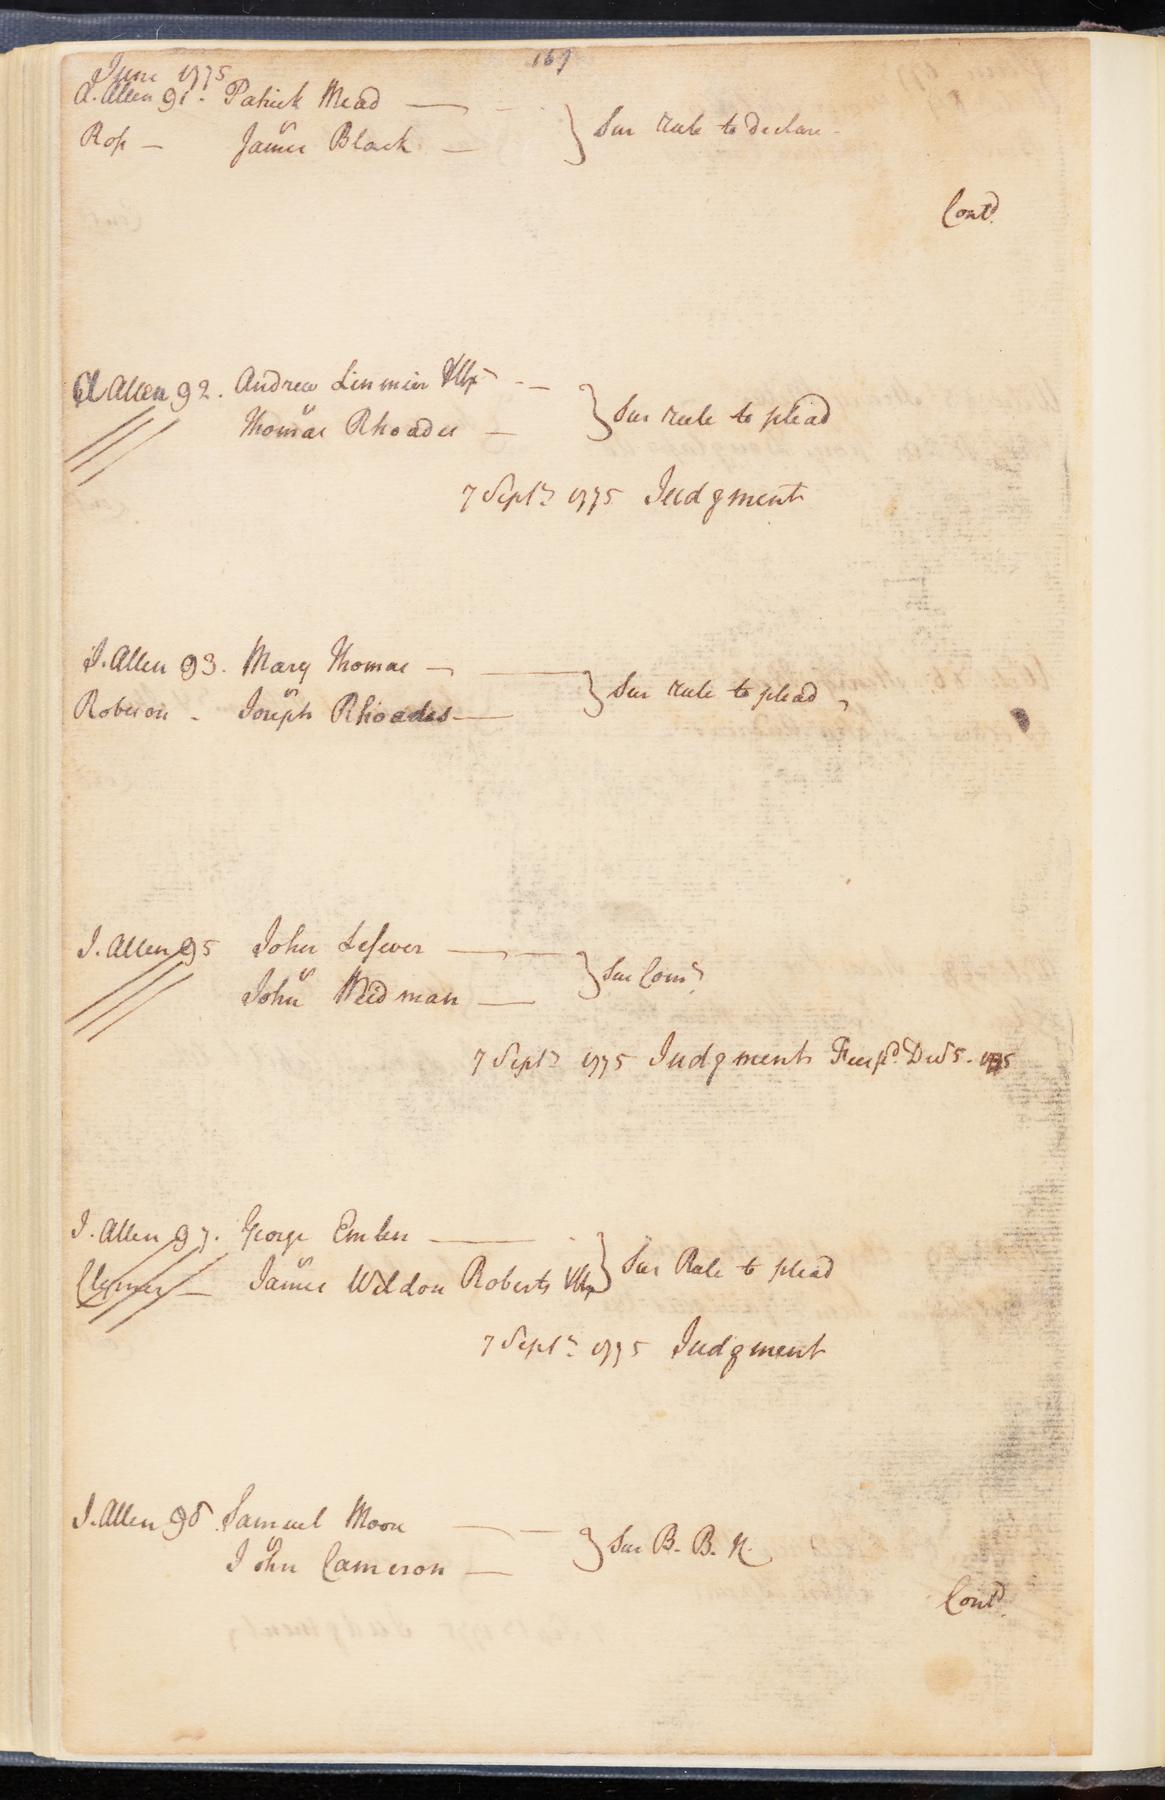 169
June 1775
A. Allen 91. Patrick Mead
Ross — James Black
} Sur rule to declare
Contd.
A Allen 92. Andrew Linmier
v
Thomas Rhoades —
} Sur rule to plead
7 Septr. 1775 Judgment
J. Allen 93. Mary Thomas —
v
Roberson - Joseph Rhoades —
} Sur rule to plead
J. Allen 95 John Lefever —
v
John Weidman —
} Sur Com
7 Septr. 1775 Judgment Fees pd. Decr 5. 1775
J. Allen 97. George Emlen —
v
Clymer — James Weldon Roberts
} Sur Rule to plead
7 Septr. 1775 Judgment
J. Allen 98. Samuel Moon
John Cameron —
} Sur B. B. N.
Contd.